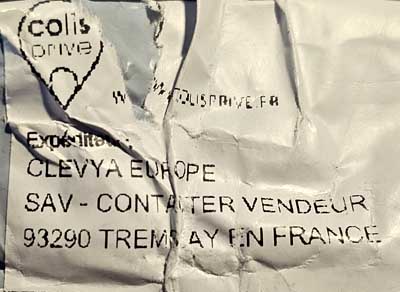 colis
privé
WWW.COLISPRIVE.FR
Expéditeur :
CLEVYA EUROPE
SAV - CONTACTER VENDEUR
93290 TREMBLAY EN FRANCE